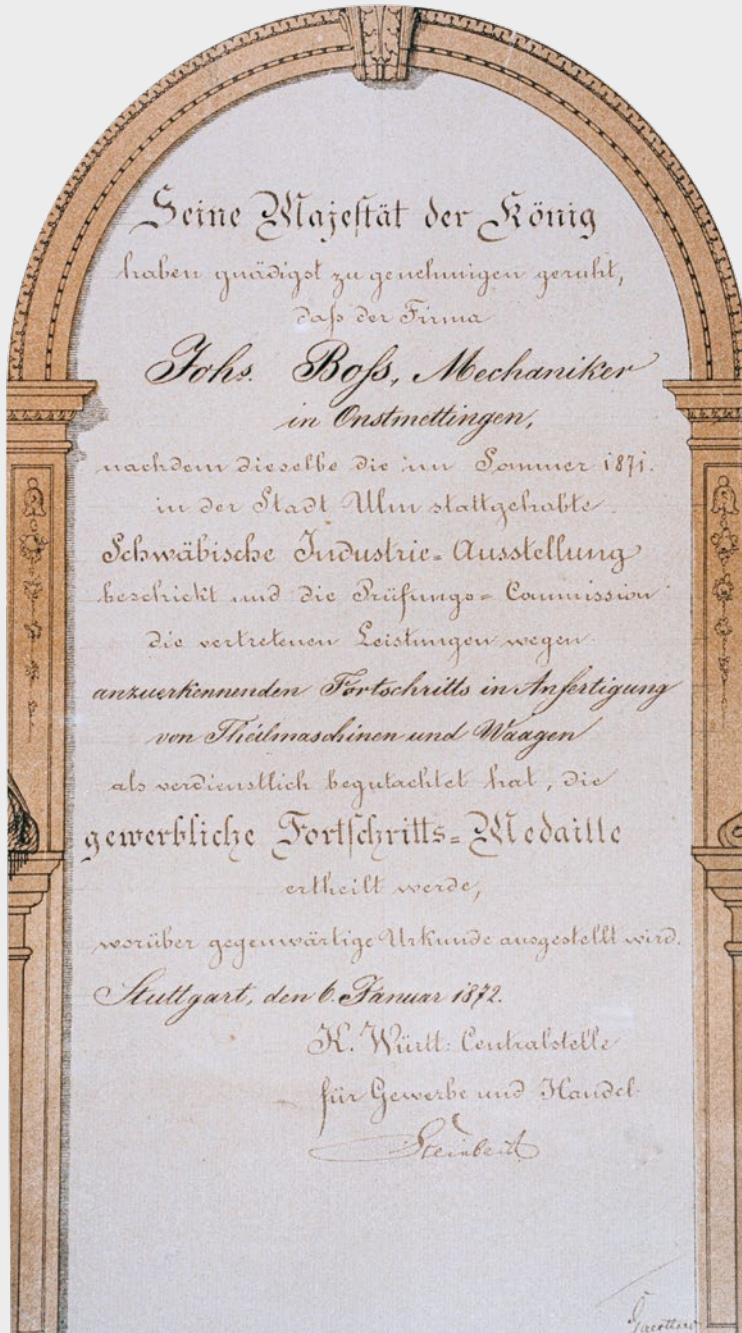 Seine Majestät der König
haben gnädigst zu genehmigen geruht,
daß der Firma
Johs. Boss, Mechaniker
in Onstmettingen,
nachdem dieselbe die im Sommer 1871.
in der Stadt Ulm stattgehabte
Schwäbische Industrie=Ausstellung
beschickt und die Prüfungs=Commission
die vertretenen Leistungen wegen
anzuerkennenden Fortschritts in Anfertigung
von Theilmaschinen und Waagen
als verdienstlich begutachtet hat, die
gewerbliche Fortschritts=Medaille
ertheilt werde,
worüber gegenwärtige Urkunde ausgestellt wird.
Stuttgart, den 6. Januar 1872.
K. Württ: Centralstelle
für Gewerbe und Handel
Steinbeis